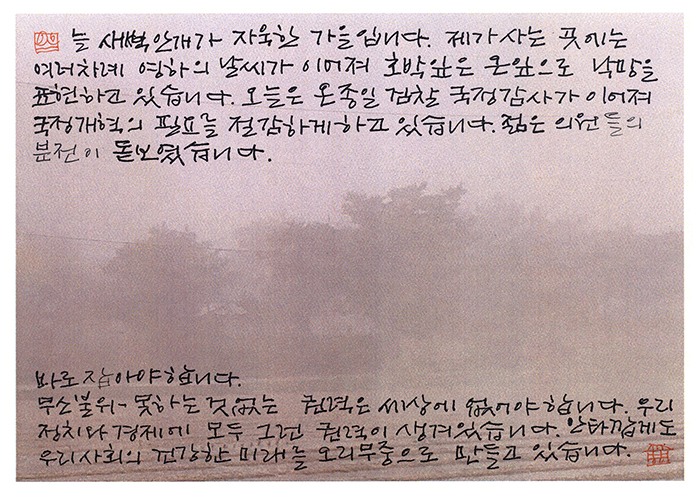 늘 새벽안개가 자욱한 가을입니다. 제가 사는 곳에는
여러차례 영하의 날씨가 이어져 호박잎은 온잎으로 낙망을
표현하고 있습니다. 오늘은 온종일 검찰 국정감사가 이어져
국정개혁의 필요를 절감하게하고 있습니다. 젊은 의원들의
분전이 돋보였습니다.
바로잡아야합니다.
무소불위- 못하는 것 없는 권력은 세상에 없어야 합니다. 우리
정치와 경제에 모두 그런 권력이 생겨있습니다. 안타깝게도
우리사회의 건강한 미래를 오리무중으로 만들고 있습니다.